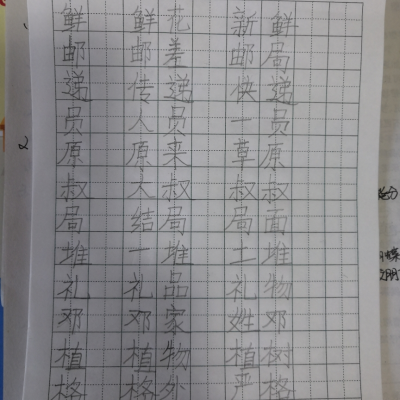 鲜 鲜花 新鲜
邮 邮差 邮局
递 传递 快递
员 人员 一员
原 原来 草原
叔 大叔 叔叔
局 结局 局面
堆 一堆 土堆
礼 礼品 礼物
邓 邓家 姓邓
植 植物 植树
格 格外 严格
2